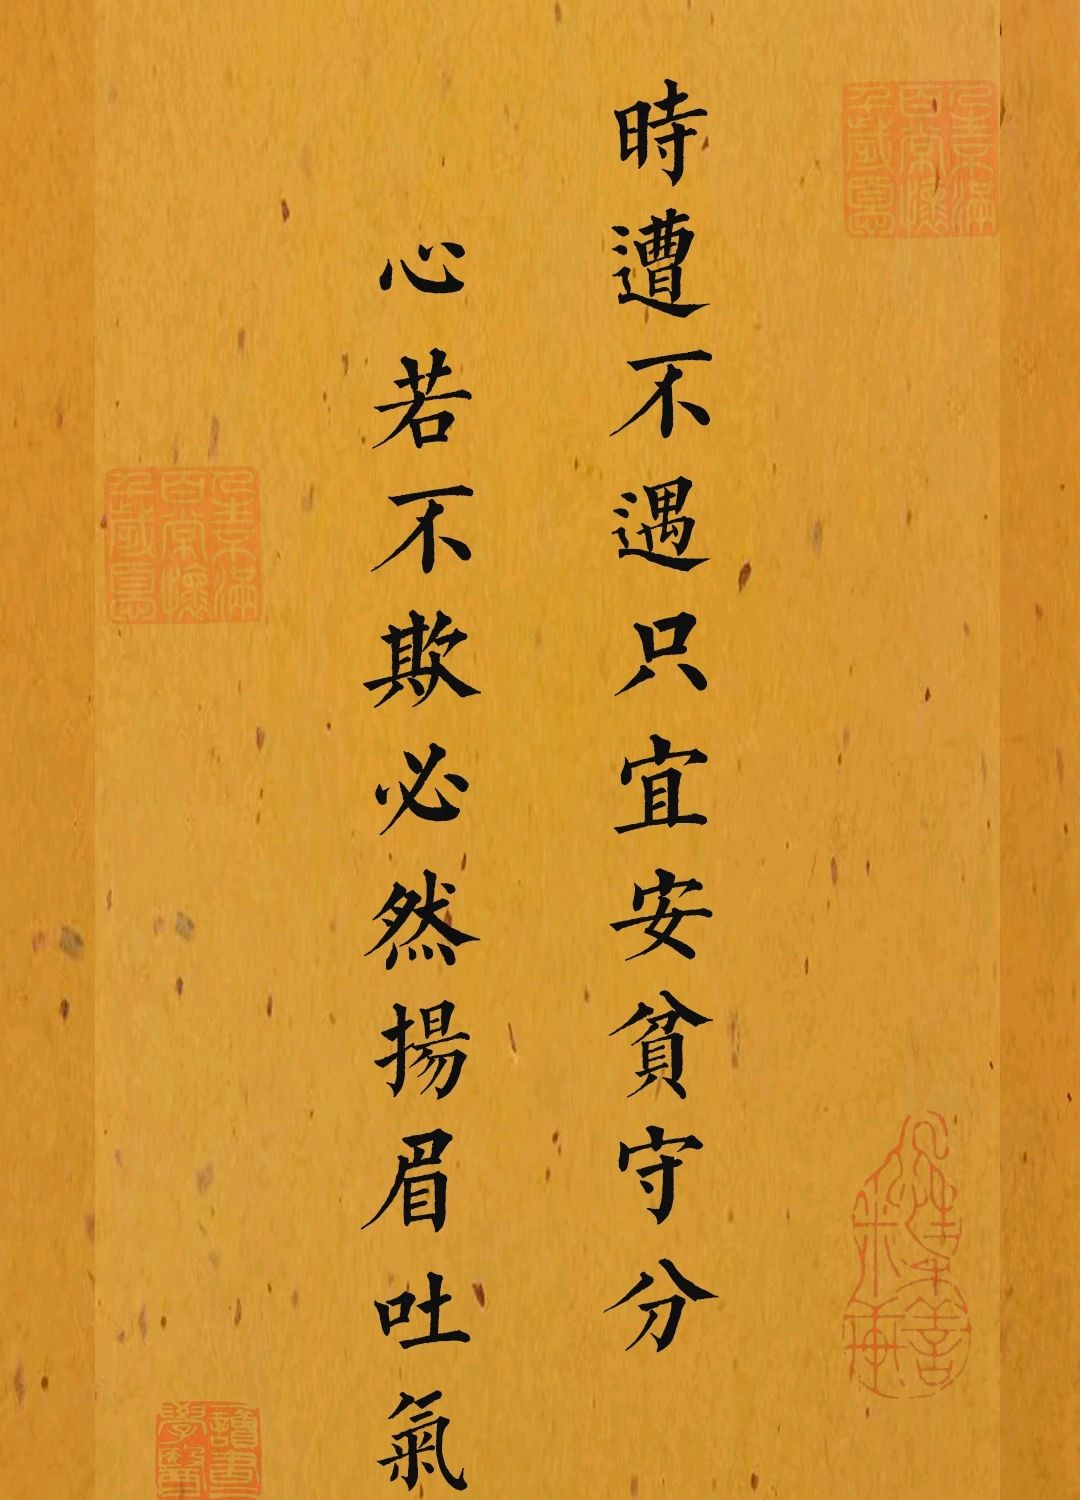 時遭不遇只宜安貧守分
心若不欺必然揚眉吐氣